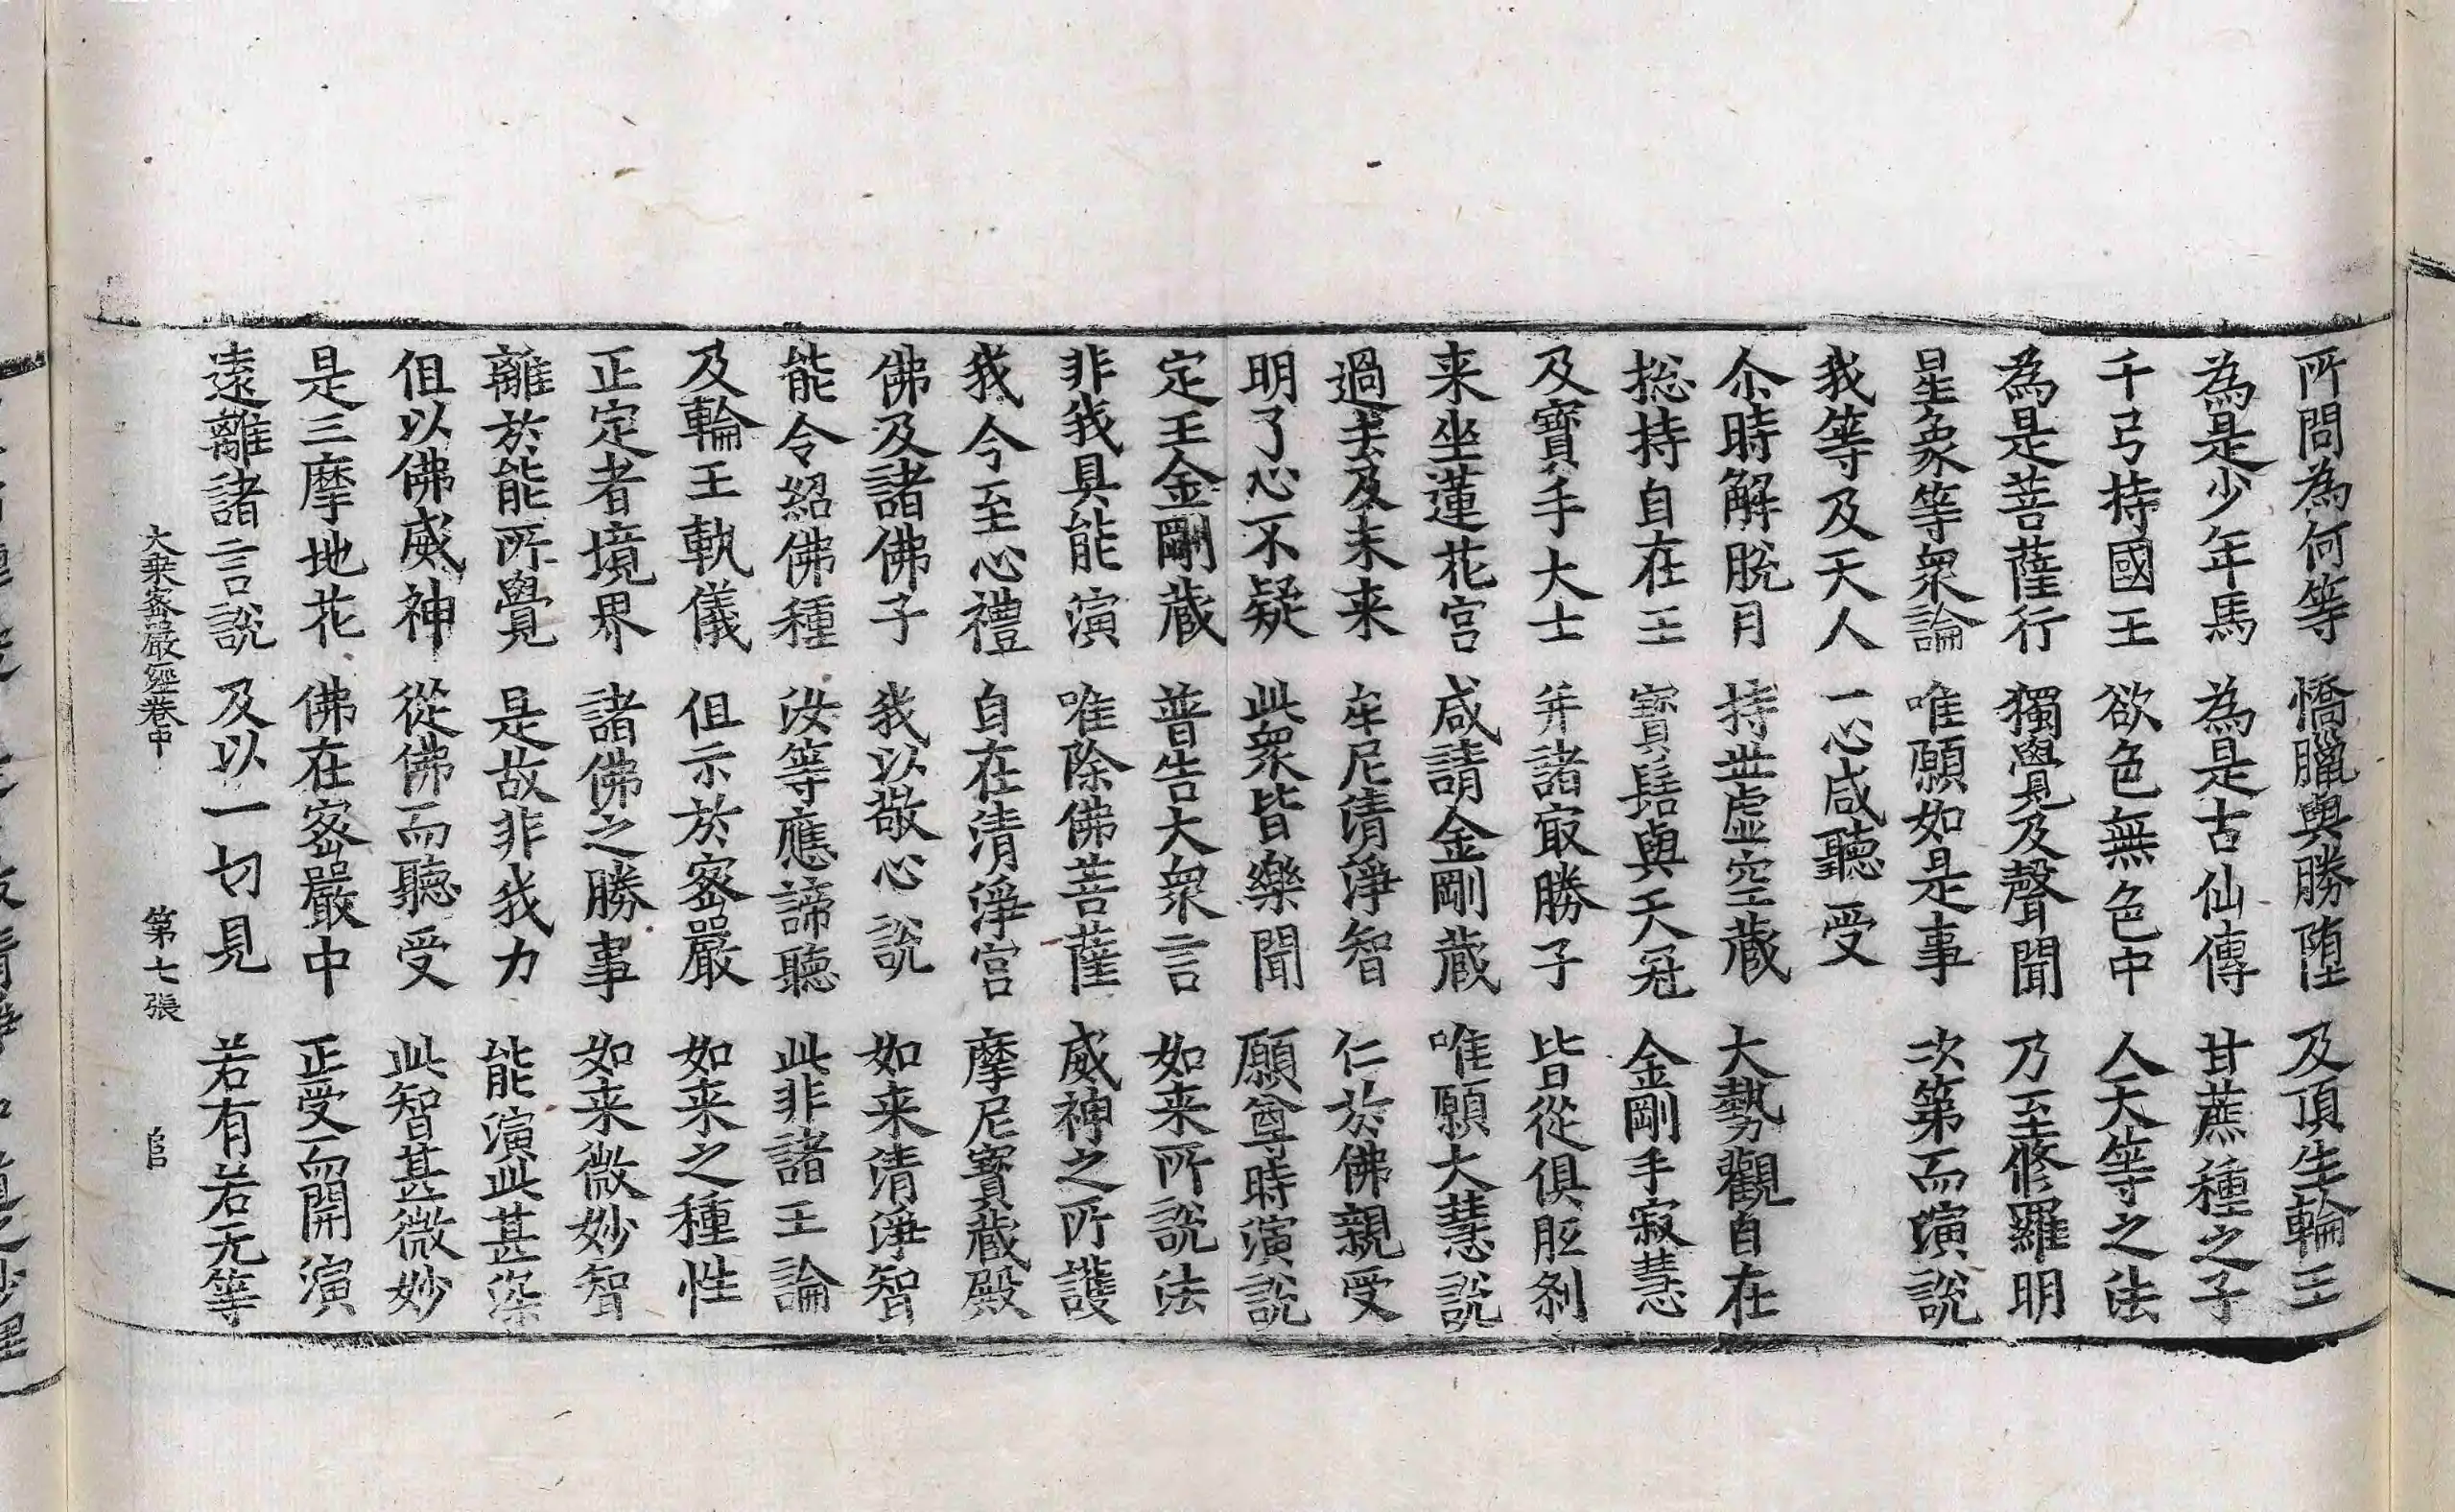 所問為何等 憍臘與勝堕 及頂生輪王
為是少年馬 為是古仙傳 甘蔗種之子
千弓持國王 欲色無色中 人天等之法
為是菩薩行 獨覺及聲聞 乃至修羅明
星象等衆論 唯願如是事 次第而演說
我等及天人 一心咸聽受
尒時解脫月 持世虛空藏 大勢觀自在
捴持自在王 寶髻與天冠 金剛手寂慧
及寶手大士 并諸㝡勝子 皆從俱胝剎
来坐蓮花宮 咸請金剛藏 唯願大慧說
過去及未来 牟尼清淨智 仁於佛親受
明了心不疑 此衆皆樂聞 願尊時演說
定王金剛藏 普告大衆言 如来所說法
非我具能演 唯除佛菩薩 威神之所護
我今至心禮 自在清淨宮 摩尼寶藏殿
佛及諸佛子 我以敬心說 如来清淨智
能令紹佛種 汝等應諦聽 此非諸王論
及輪王軌儀 但示於密嚴 如来之種性
正定者境界 諸佛之勝事 如来微妙智
離於能所覺 是故非我力 能演此甚深
但以佛威神 從佛而聽受 此智甚微妙
是三摩地花 佛在密嚴中 正受而開演
遠離諸言說 及以一切見 若有若无等
大乗密嚴經卷中 第七張